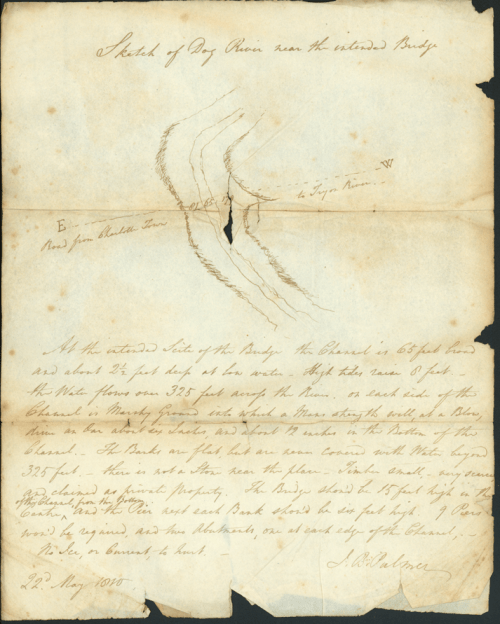 Sketch of Dog River near the intended Bridge
W
to Tryon River
E
Road from Charlotte Town
Ch. 65 ft
At the intended Scite of the Bridge the Channel is 65 feet broad
and about 2½ feet deep at low water - High tides raise 8 feet -
the Water flows over 325 feet across the River. on each side of the
Channel is Marshy Ground into which a Mans strength will, at a Blow,
drive an bar about six Inches and about 12 inches in the Bottom of the
Channel. - The Banks are flat, but are never covered with Water beyond
325 feet. - there is not a Stone near the place - Timber small, very scarce
and claimed as private property. The Bridge should be 15 feet high in the
of the Channel, from the Bottom
Centre, and the Pier next each Bank should be six feet high. 9 Piers
wou'd be required, and two Abutments, one at each edge of the Channel, -
No Ice, or Current, to hurt. -
J. B. Palmer
22d. May 1810